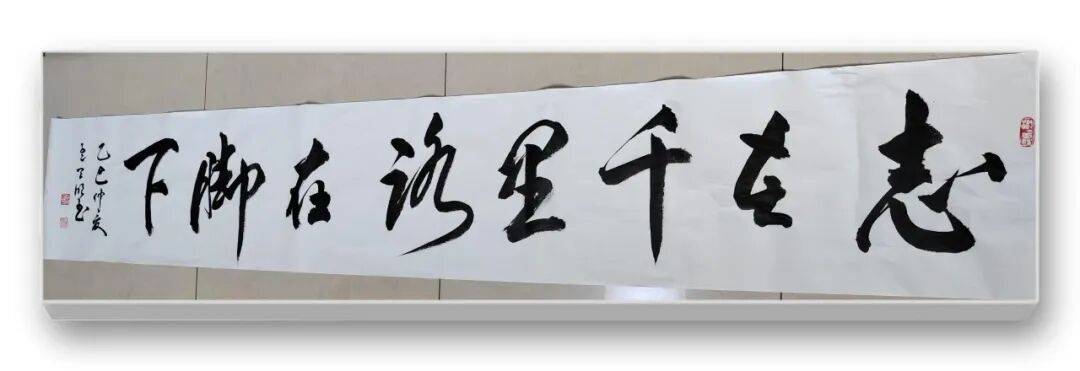 志在千里路在脚下
乙巳仲夏